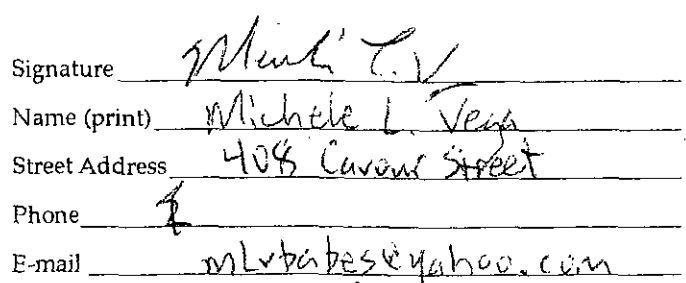 Signature
Name (print) Michele L. Vega
Street Address 408 Cavour Street
Phone
E-mail mLvbabes@yahoo.com